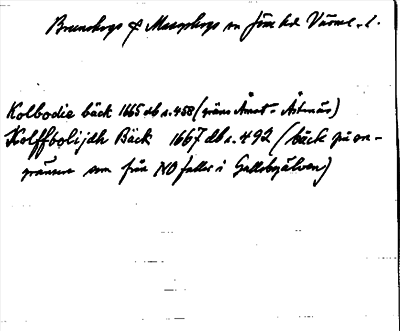 Brunskogs & Mangskogs sn Jösse hd Värml. l.
Kolbodie bäck 1665 db s. 458 (gräns Åmot -
Kolffbolijdh Bäck 1667 db s. 492 (bäck på sn-
gränsen som från NO faller i